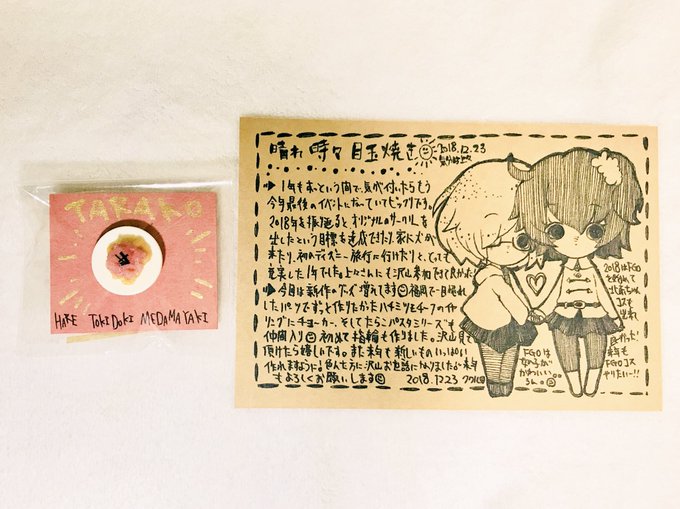 TARAKO
HARE TOKIDOKI MEDAMAYAKI
晴れ 時々 目玉焼き
2018.12.23
1年もあっという間で、気が付いたらもう
今年最後のイベントになっていてビックリです。
2018年を振り返ると オリジナルの
出したという目標も達成できたり、家に犬が
来たり、初のディズニー旅行に行けたりと、とっても
充実した1年でした。
今回は新作のグッズ増えてます 福岡で一目惚れ
したパーツでずっと作りたかった ハチミツとチーズのイヤ
リングにチョーカー、そしてたらこパスタシリーズも
仲間入り 初めて指輪も作りました。沢山見て
頂けたら嬉しいです。また来年も新しいものいっぱい
作れますように! 色んな方に沢山お世話になりましたが来年
もよろしくお願いします 2018.12.23
2018はFGO
コスも
出来て
良かった!
来年も
FGOコス
やりたい!!
FGOは
かわいい